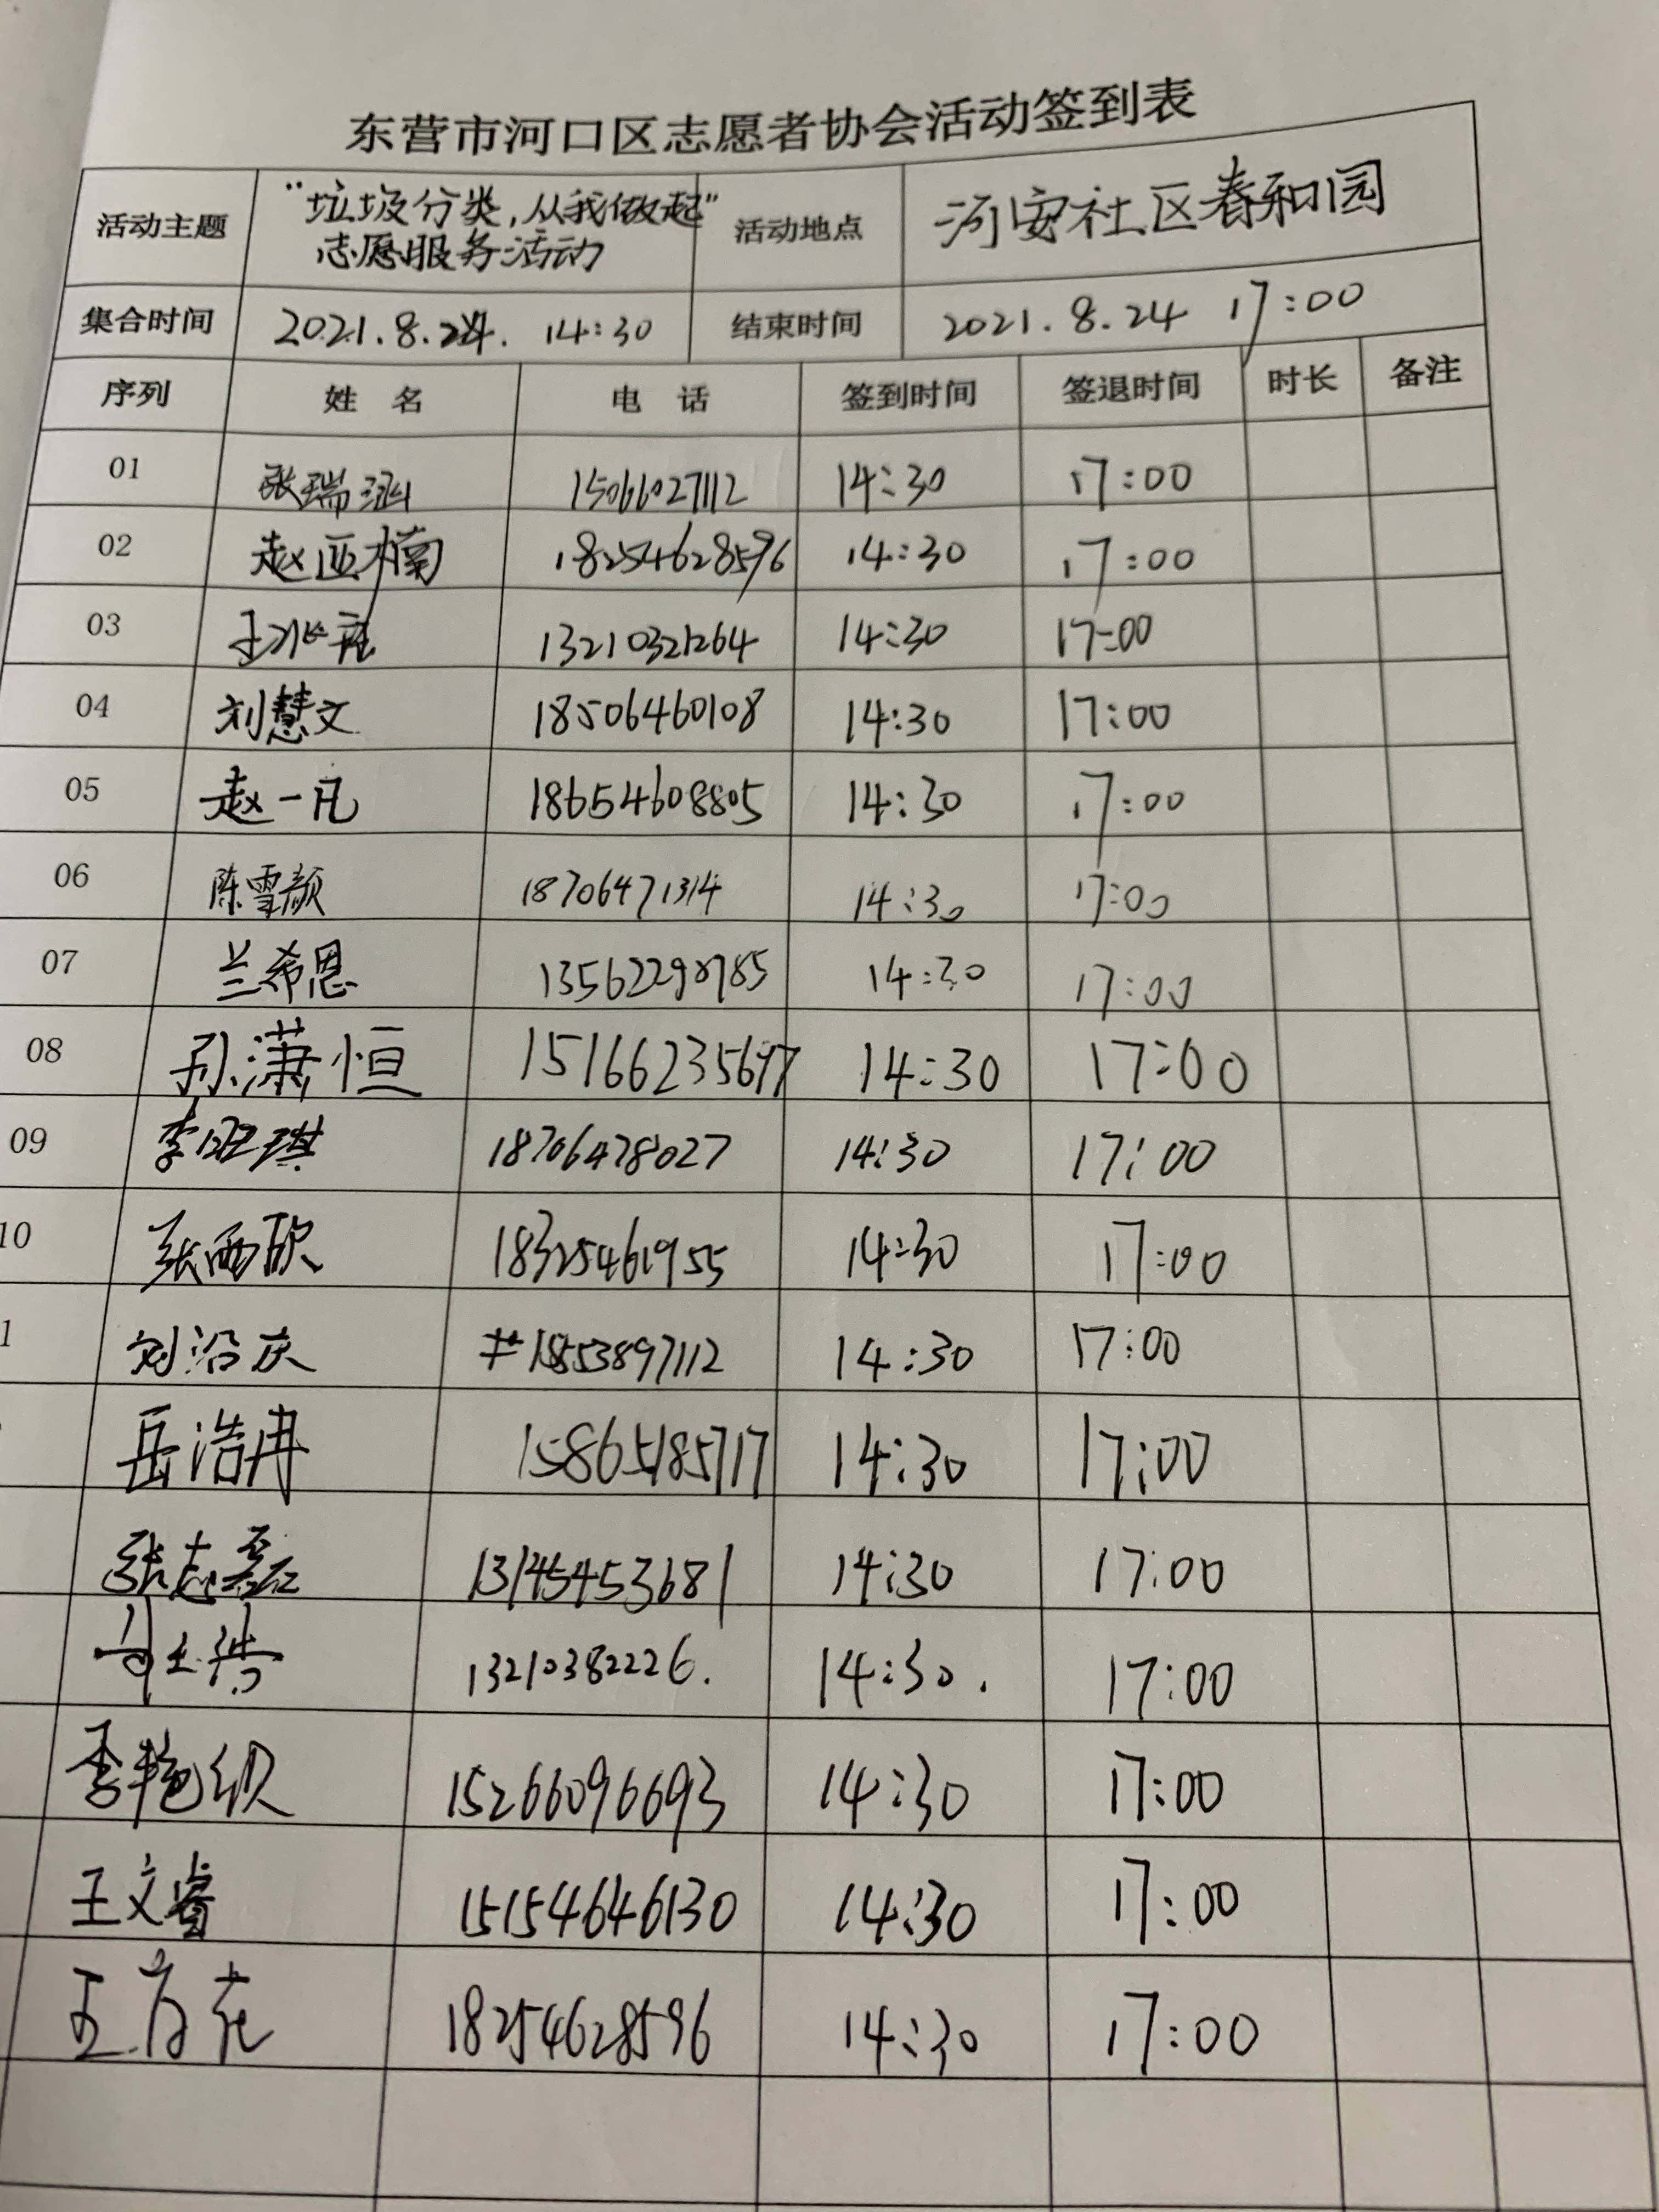 东营市河口区志愿者协会活动签到表
活动主题 "垃圾分类,从我做起" 志愿服务活动 活动地点 河安社区春和园
集合时间 2021.8.24. 14:30 结束时间 2021.8.24 17:00
序列 姓名 电话 签到时间 签退时间 时长 备注
01 张瑞涵 15066027112 14:30 17:00
02 赵亚楠 18254628596 14:30 17:00
03 13210321264 14:30 17:00
04 刘慧文 18506460108 14:30 17:00
05 赵一凡 18654608805 14:30 17:00
06 陈雪颜 18706471314 14:30 17:00
07 兰希恩 14:30 17:00
08 孙潇恒 14:30 17:00
09 李 琪 18706478027 14:30 17:00
10 张雨欣 14:30 17:00
1 刘沿庆 14:30 17:00
岳浩冉 15865185717 14:30 17:00
张志磊 13145453681 14:30 17:00
13210382226. 14:30. 17:00
李艳 15266096693 14:30 17:00
王文睿 15154646130 14:30 17:00
王 18254628596 14:30 17:00